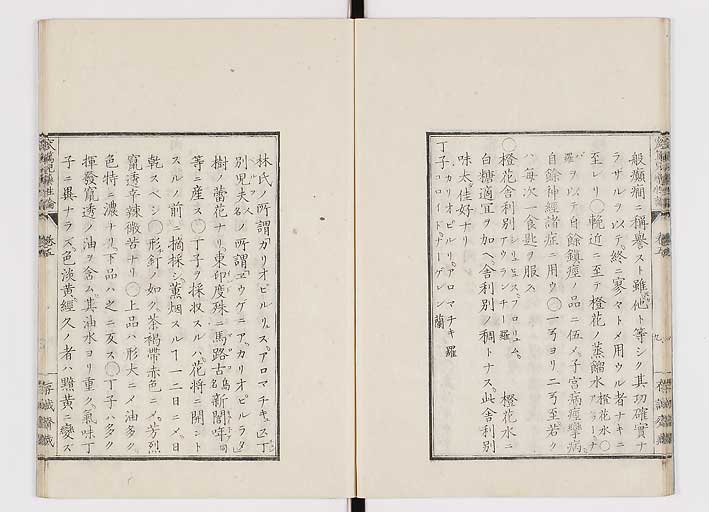 般癲癇ニ稱譽スト雖他ト等シク其功確實ナ
ラザルヲ以テ終ニ寥々トメ用ウル者ナキニ
至レリ○輓近ニ至テ橙花ノ蒸餾水橙花水○
ヲ以テ自餘鎮痙ノ品ニ伍メ子宮病痙攣病
自餘神經諸症ニ用ウ○一弓ヨリ二弓至若ク
ハ毎次一食匙ヲ服ス
○橙花舍利別 橙花水ニ
白糖適宜ヲ加ヘ舍利別ノ稠トナス此舍利別
味太佳好ナリ
丁子 カリオピルリアロマチキ羅
コロイドナーゲレン蘭
林氏ノ所謂カリオピルリュスアロマチキュス丁
別兒夫名ノ所謂ヱウゲニアカリオピルラタ
樹ノ蕾花ナリ東印度殊ニ馬路古島名新閣
等ニ産ス○丁子ヲ採収スルハ花將ニ開ント
スルノ前ニ摘採シ薫烟スルヿ一二日ニメ日
乾スベシ○形釘ノ如ク茶褐帶赤色ニメ芳烈
竄透辛辣微苦ナリ○上品ハ形大ニメ油多ク
色特ニ濃ナリ下品ハ之ニ反ス○丁子ハ多ク
揮發竄透ノ油ヲ含ム其油水ヨリ重ク氣味丁
子ニ異ナラズ色淡黄經久ノ者ハ黯黄ニ變ズ